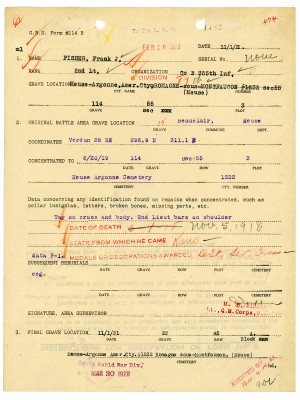 G.R.S. Form #114 B
FEB 26 1921
DATE 11/1/21
1. NAME FISHER, Frank J. SERIAL NO. None
RANK 2nd Lt. ORGANIZATION Co B 355th Inf.
DIVISION
GRAVE LOCATION Meuse-Argonne,Amer.Cty,ROMAGNE-sous-MONTFAUCON #1232 sec55
CTY. NAME NUMBER
114 55 3
GRAVE ROW
2. ORIGINAL BATTLE AREA GRAVE LOCATION Beauclair, Meuse
COMMUNE DEPT
COORDINATES Verdun 35 NE 298.9 N 311.1 E
CONCENTRATED TO 6/20/19 114 Sec:55 3
DATE GRAVE ROW
Meuse Argonne Cemetery 1232
CEMETERY
Data concerning any identification found on remains when concentrated, such as
collar insignias, letters, broken bones, missing parts, etc.
Tag on cross and body. 2nd Lieut bars on shoulder
DATE OF DEATH Nov 5, 1918
STATE FROM WHICH HE CAME
MEDALS OR DECORATIONS AWARDED
SUBSEQUENT REBURIALS DATE GRAVE ROW PLOT CEMETERY
org.
SIGNATURE, AREA SUPERVISOR Q.M.Corps.
3. FINAL GRAVE LOCATION 11/1/21 22 43 A.
DATE GRAVE ROW Block
Meuse-Argonne Amer.Cty.#1232 Romagne sous-Montfaucon, (Meuse)
CEMETERY
World War Div.
MAR 30 1928